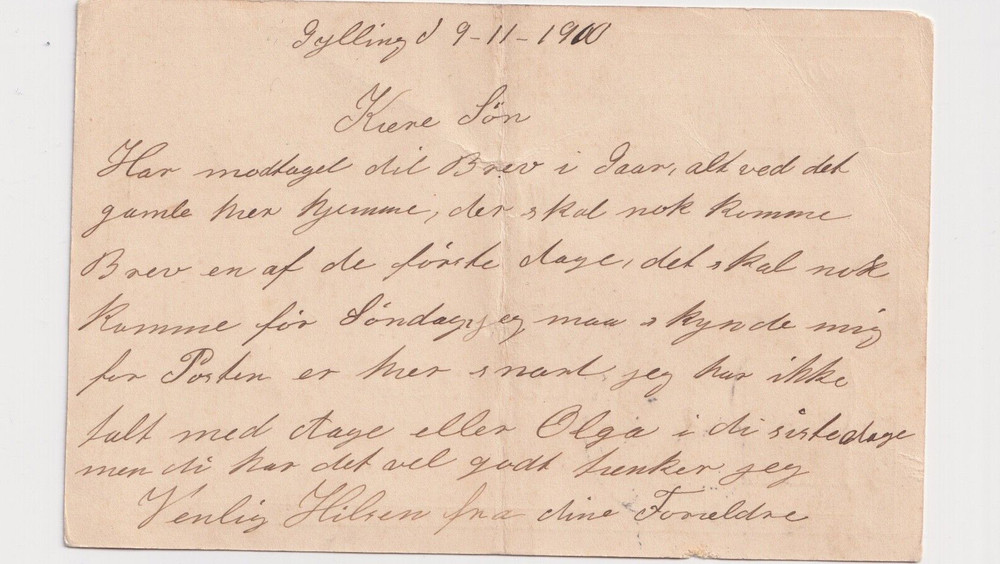 Gylling d 9-11-1910
Kære Søn
Har modtaget dit Brev i Gaar, alt ved det
gamle her hjemme, der skal nok komme
Brev en af de første dage, det skal nok
komme før Søndag, jeg maa skynde mig
for Posten er her snart, jeg har ikke
talt med Aage eller Olga i di siste dage
men di har det vel godt tænker jeg
Venlig Hilsen fra dine Forældre